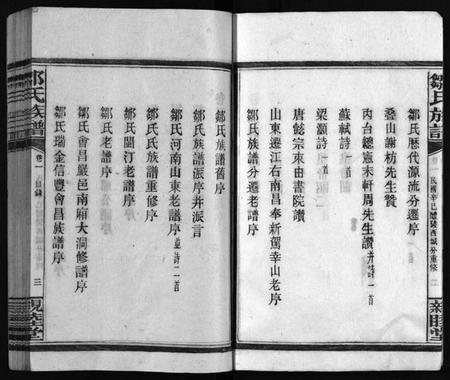 鄒氏族譜
民國辛巳醴陵西城分重修
二
親睦堂
鄒氏歷代源流分遷序
疊山謝枋先生贊
內台總憲未軒周先生讚并詩一首
蘇軾詩一首
梁灝詩一首
唐懿宗東由書院讚
山東遷江右南昌奉新駕幸山老序
鄒氏族譜分遷老序
鄒氏族譜舊序
鄒氏族譜派序并派言
鄒氏氏族譜重修序
鄒氏河南山東老譜序并詩二首
鄒氏閩汀老譜序
鄒氏老譜序
鄒氏會昌嚴邑南廂大洞修譜序
鄒氏瑞金信豐會昌族譜序
鄒氏族譜
卷一
目錄
三
親睦堂